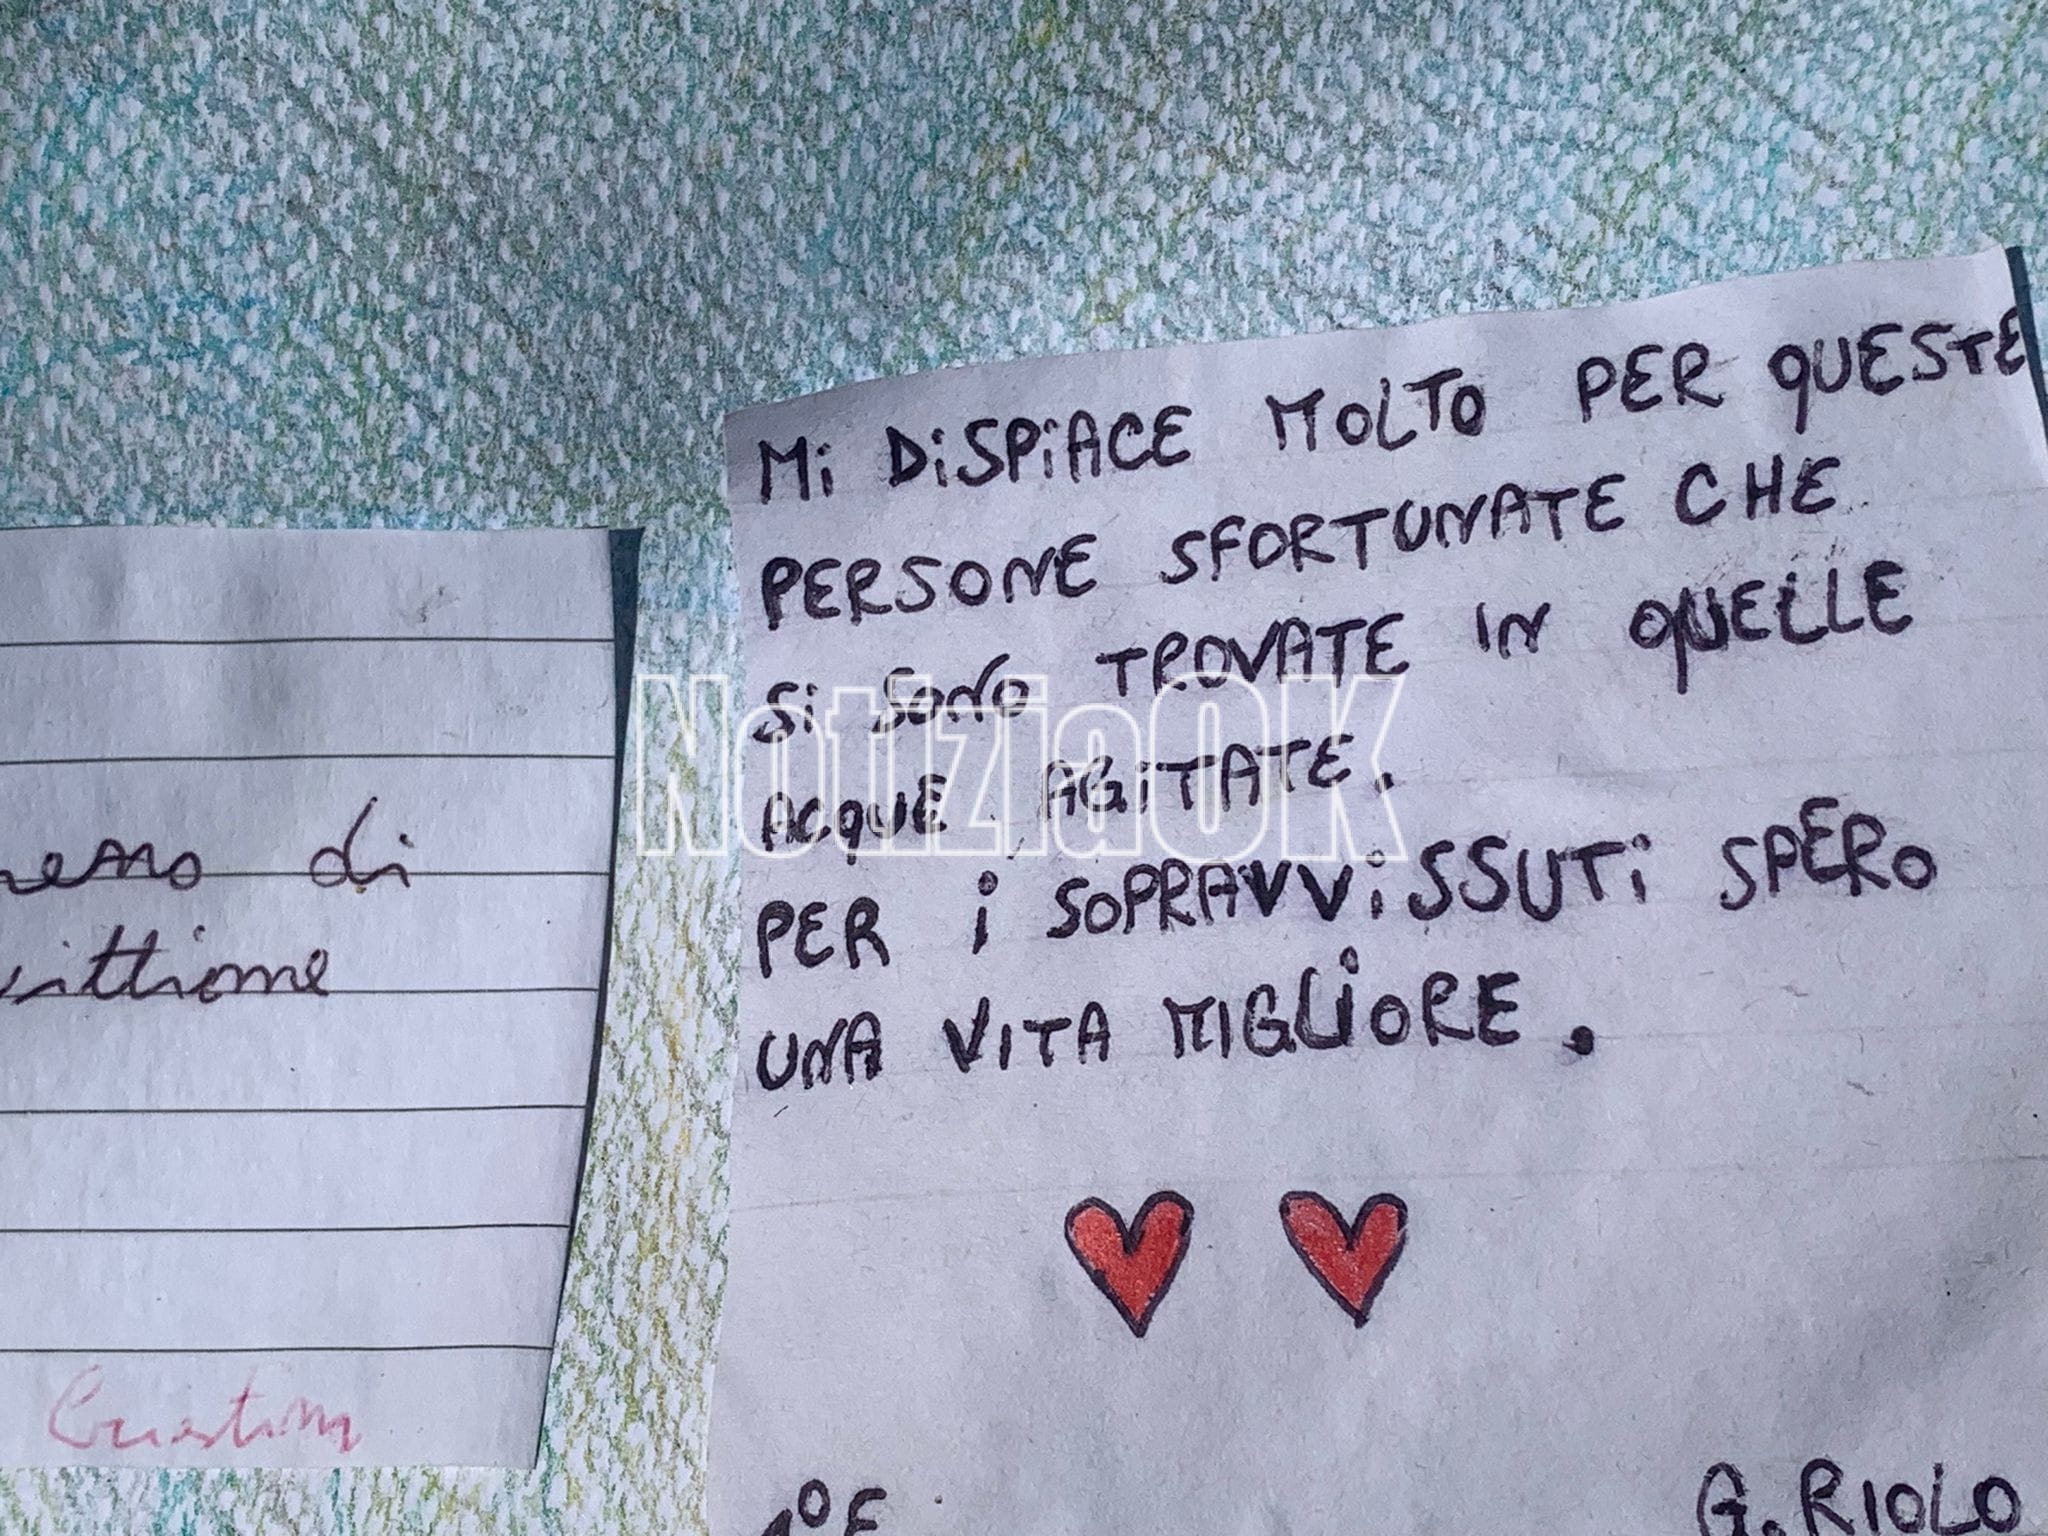 di
vittime
MI DISPIACE MOLTO PER QUESTE
PERSONE SFORTUNATE CHE
SI SONO TROVATE IN QUELLE
ACQUE AGITATE.
PER I SOPRAVVISSUTI SPERO
UNA VITA MIGLIORE.
1°E G. RIOLO
NotiziaOK